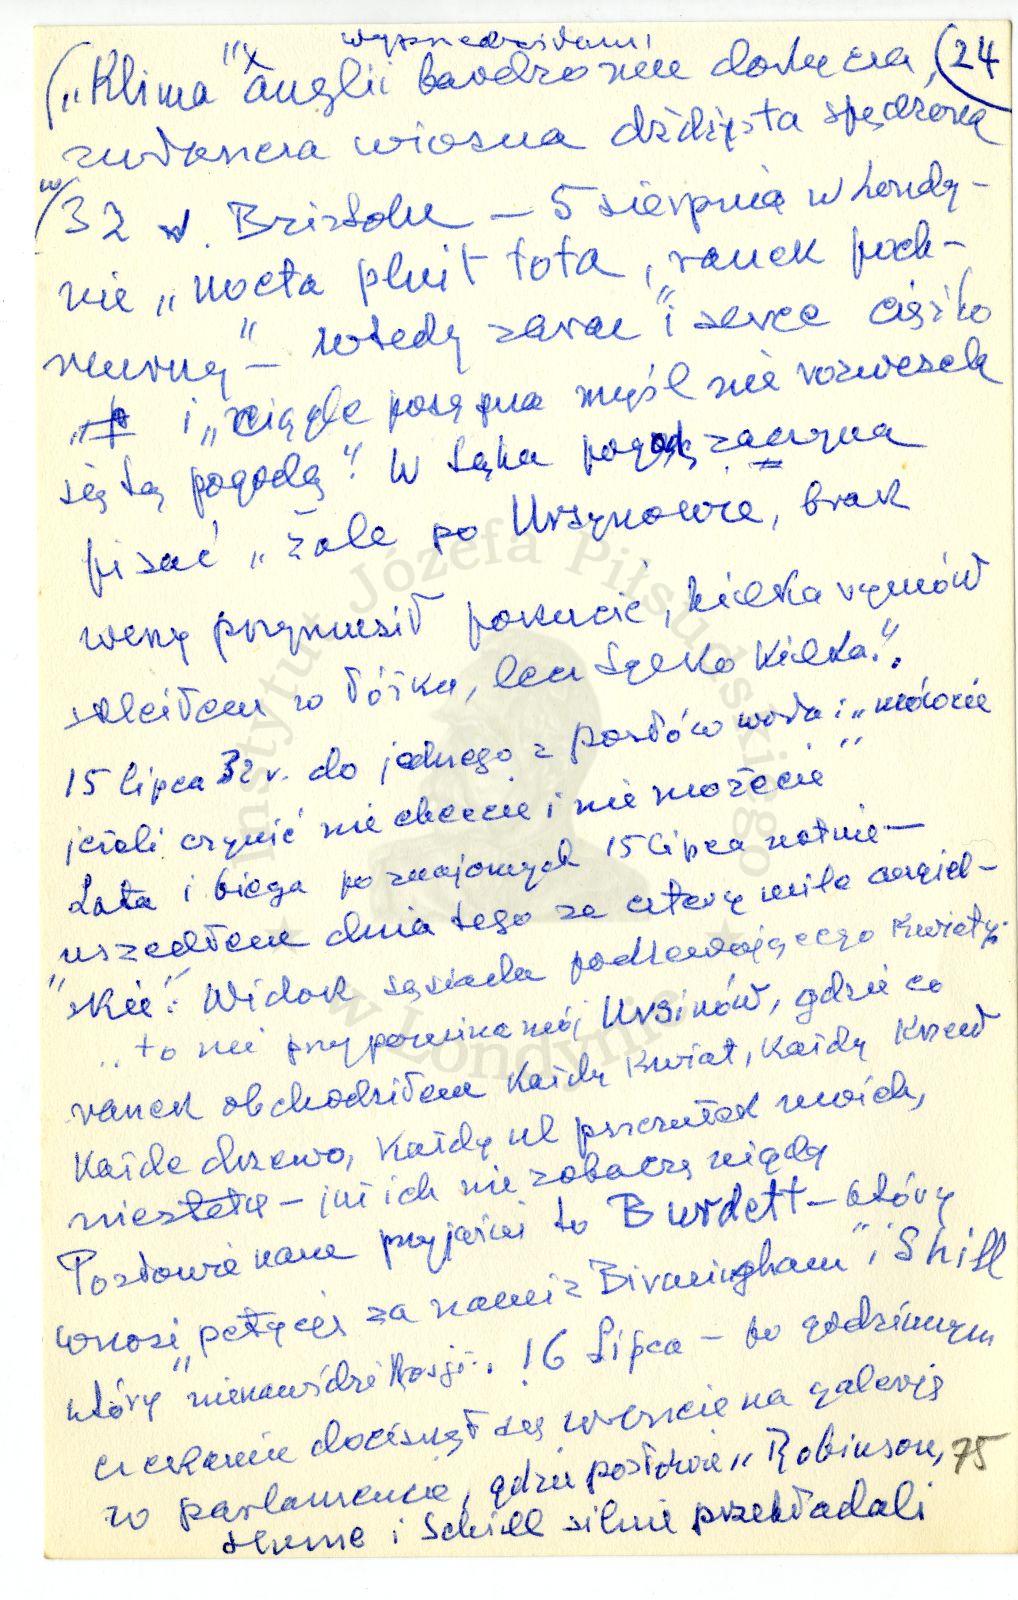 ("Klima" Anglii bardzo mu dokucza, (24
zwłaszcza wiosna dżdżysta spędzona
w/ 32 w. Bristolu – 5 sierpnia w Londy-
nie „nocta pluit tota, ranek poch-
murny" – wtedy zaraz "i serce ciężko
i „ciągle posępna myśl nie rozwesela
się tą pogodą". W taką pogodę zaczyna
pisać „Żale po Ursynowie, brak
weny przymusił porzucić, kilka rymów
skleiłem w łóżku, lecz tylko kilka".
15 lipca 32 r. do jednego z posłów woła: „mówcie
jeżeli czynić nie chcecie i nie możecie"
Lata i biega po znajomych 15 lipca notuje –
uszedłem dnia tego ze cztery mile angiel-
"skie". Widok sąsiada podlewającego kwiaty:
„to mi przypomina mój Ursinów, gdzie co
ranek obchodziłem każdy kwiat, każdy krzew
każde drzewo, każdy ul pszczółek moich,
niestety – już ich nie zobaczę nigdy
Posłowie nam przyjaźni to Burdett – który
wnosi „petycję za nami z Birmingham" i Shill
który "nienawidzi Rosji". 16 Lipca – po godzinnym
czekaniu docisnął się wreszcie na galerję
w parlamencie, gdzie posłowie „Robinson, 75
Hume i Schill silnie przekładali
Instytut Józefa Piłsudskiego
w Londynie